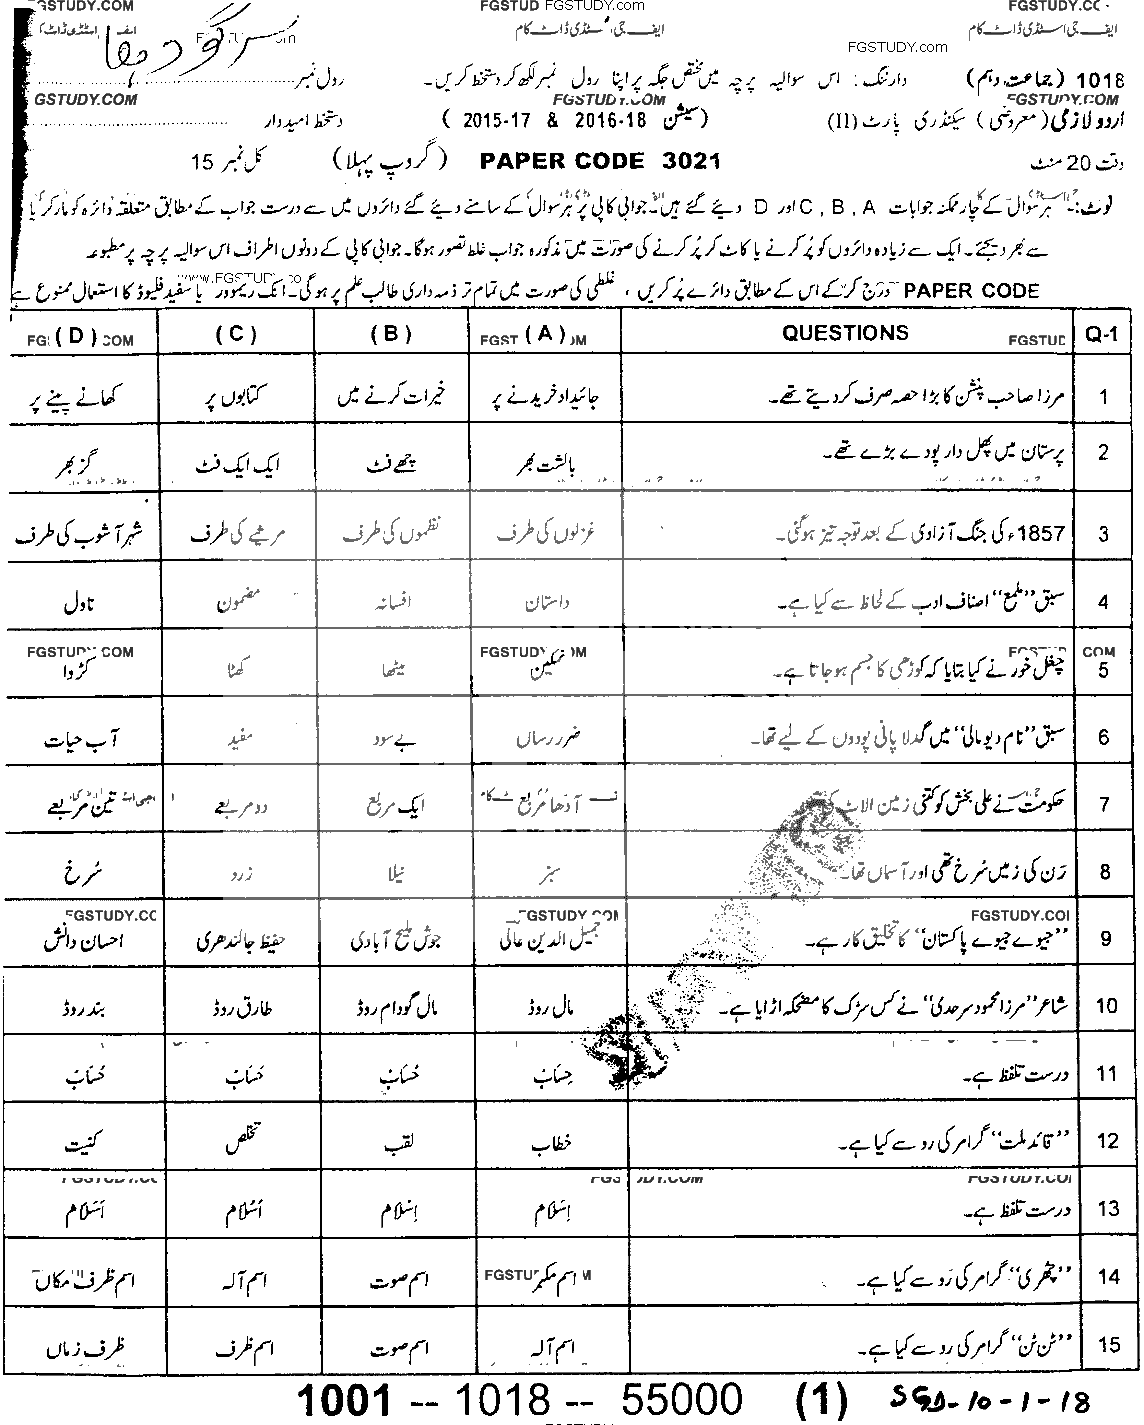 FGSTUDY.COM FGSTUD FGSTUDY.com FGSTUDY.CC
ایف جی اسٹڈی ڈاٹ کام ایف جی اسٹڈی ڈاٹ کام
سرگودھا
FGSTUDY.com
1018 (جماعت دہم) وارننگ : اس سوالیہ پرچہ میں مختص جگہ پر اپنا رول نمبر لکھ کر دستخط کریں۔ رول نمبر
GSTUDY.COM FGSTUDY.COM FGSTUDY.COM
اردو لازمی (معروضی) سیکنڈری پارٹ (II) (سیشن 2016-18 & 2015-17) دستخط امیدوار
وقت 20 منٹ PAPER CODE 3021 (گروپ پہلا) کل نمبر 15
نوٹ:۔ ہر سوال کے چار ممکنہ جوابات A , B , C اور D دیئے گئے ہیں۔ جوابی کاپی پر ہر سوال کے سامنے دیئے گئے دائروں میں سے درست جواب کے مطابق متعلقہ دائرہ کو مارکر یا
سے بھر دیجئے۔ ایک سے زیادہ دائروں کو پُر کرنے یا کاٹ کر پُر کرنے کی صورت میں مذکورہ جواب غلط تصور ہوگا۔ جوابی کاپی کے دونوں اطراف اس سوالیہ پرچہ پر مطبوعہ
www.FGSTUDY.co
PAPER CODE درج کرکے اس کے مطابق دائرے پُر کریں ، غلطی کی صورت میں تمام تر ذمہ داری طالب علم پر ہوگی۔ انک ریموور یا سفید فلیوڈ کا استعمال ممنوع ہے
Q-1 QUESTIONS (A) (B) (C) (D)
1 مرزا صاحب پنشن کا بڑا حصہ صرف کر دیتے تھے۔ جائیداد خریدنے پر خیرات کرنے میں کتابوں پر کھانے پینے پر
2 پرستان میں پھل دار پودے بڑے تھے۔ بالشت بھر چھے فٹ ایک ایک فٹ گز بھر
3 1857ء کی جنگ آزادی کے بعد توجہ تیز ہوگئی۔ غزلوں کی طرف نظموں کی طرف مرثیے کی طرف شہر آشوب کی طرف
4 سبق ”ملمع“ اصناف ادب کے لحاظ سے کیا ہے۔ داستان افسانہ مضمون ناول
FGSTUDY.COM FGSTUDY OM FGSTUD COM
5 چغل خور نے کیا بتایا کہ کوڑھی کا جسم ہوجاتا ہے۔ نمکین میٹھا کھٹا کڑوا
6 سبق ”نام دیو مالی“ میں گدلا پانی پودوں کے لیے تھا۔ ضرر رساں بے سود مفید آب حیات
7 حکومت نے علی بخش کو کتنی زمین الاٹ کی آدھا مربع ایک مربع دو مربعے تین مربعے
8 رَن کی زمیں سُرخ تھی اور آسماں تھا۔ سبز نیلا زرد سُرخ
FGSTUDY.CO FGSTUDY.COM FGSTUDY.COI
9 ”جیوے جیوے پاکستان“ کا تخلیق کار ہے۔ جمیل الدین عالی جوش ملیح آبادی حفیظ جالندھری احسان دانش
10 شاعر ”مرزا محمود سرحدی“ نے کس سڑک کا مضحکہ اڑایا ہے۔ مال روڈ مال گودام روڈ طارق روڈ بند روڈ
11 درست تلفظ ہے۔ حِسَابْ حُسَابْ حَسَابْ حُسَابْ
12 ”قائد ملت“ گرامر کی رو سے کیا ہے۔ خطاب لقب تخلص کنیت
13 درست تلفظ ہے۔ اِسَلَام اِسْلَام اُسْلَام اَسَلَام
14 ”چھری“ گرامر کی رو سے کیا ہے۔ اسم مکبر اسم صوت اسم آلہ اسم ظرف مکاں
15 ”ٹن ٹن“ گرامر کی رو سے کیا ہے۔ اسم آلہ اسم صوت اسم ظرف ظرف زماں
1001 -- 1018 -- 55000 (1) SGD-10-1-18